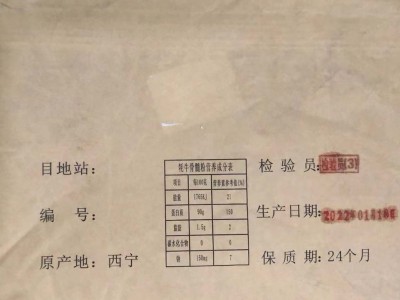 目地站：
编 号：
原产地：西宁
牦牛骨髓粉营养成分表
项目 每100克 营养素参考值(%)
能量 1785KJ 21
蛋白质 90g
脂肪 1.5g 2
碳水化合物 0 0
钠 150mg 7
检 验 员：检验员(3)
生产日期：
保 质 期：24个月